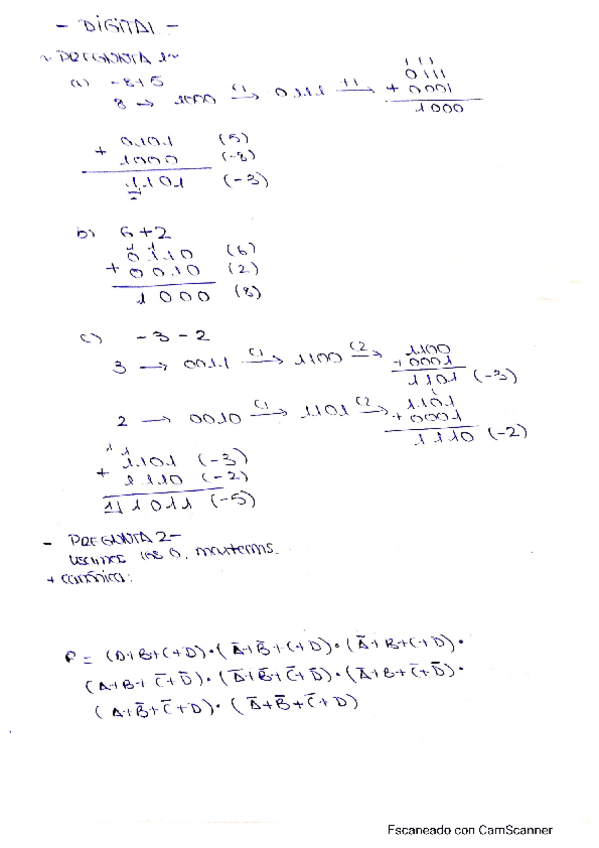 - DIGITAL -
- PREGUNTA 1-
(a) -8+5
8 → 1000 C1→ 0111 +1→
111
0111
+ 0001
1000
+ 0101 (5)
1000 (-8)
1101 (-3)
b) 6+2
11
0110 (6)
+ 0010 (2)
1000 (8)
c) -3-2
3 → 0011 C1→ 1100 C2→ 1100
+ 0001
1101 (-3)
2 → 0010 C1→ 1101 C2→ 1101
+ 0001
1110 (-2)
11
+ 1101 (-3)
1110 (-2)
111011 (-5)
- PREGUNTA 2-
0. maxterms.
+ canónica:
F = (A+B+C+D)·(Ā+B̄+C+D)·(Ā+B+C+D)·
(A+B+C̄+D̄)·(Ā+B̄+C̄+D̄)·(Ā+B+C̄+D̄)·
(A+B̄+C̄+D)·(Ā+B̄+C̄+D)
Escaneado con CamScanner